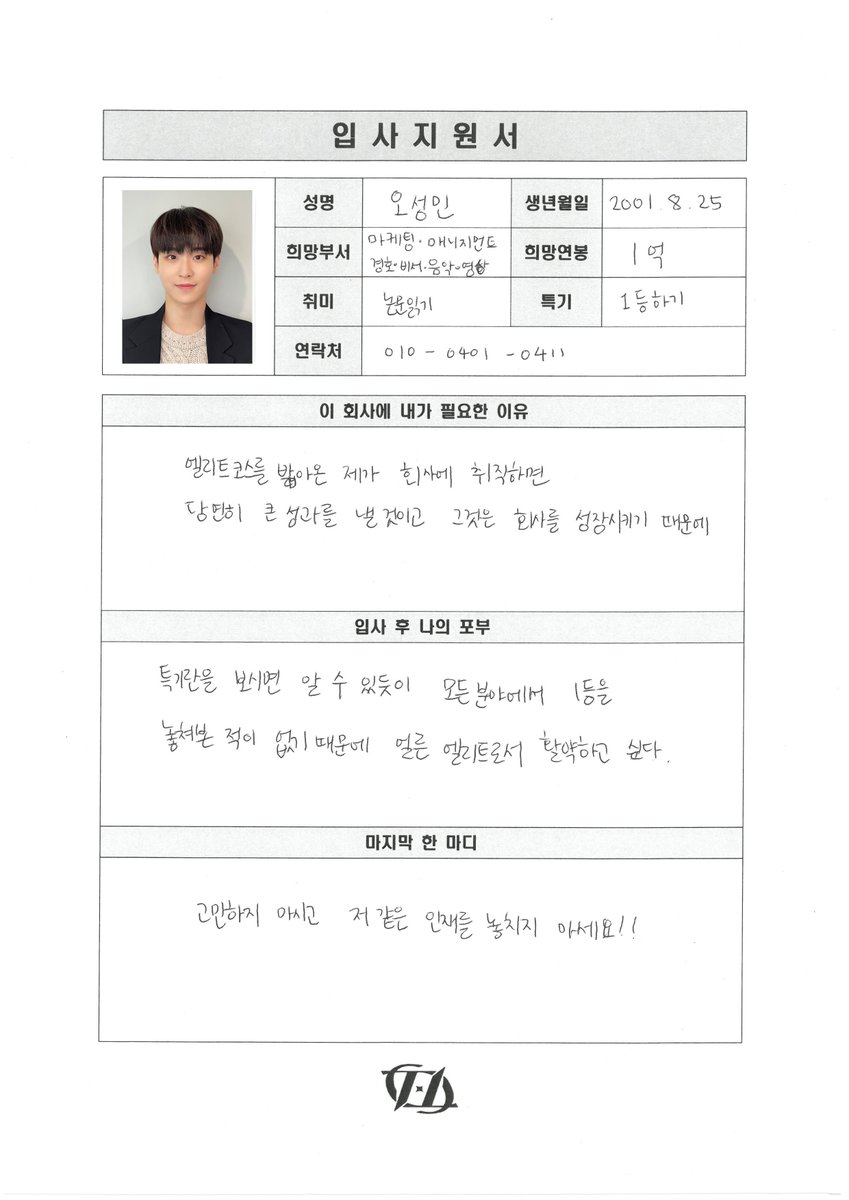 입사지원서
성명 오성민 생년월일 2001. 8. 25
희망부서 마케팅·매니지먼트 경호·비서·음악·영상 희망연봉 1억
취미 논문읽기 특기 1등하기
연락처 010 - 0401 - 0411
이 회사에 내가 필요한 이유
엘리트코스를 밟아온 제가 회사에 취직하면
당연히 큰 성과를 낼 것이고 그것은 회사를 성장시키기 때문에
입사 후 나의 포부
특기란을 보시면 알 수 있듯이 모든분야에서 1등을
놓쳐본 적이 없기 때문에 얼른 엘리트로서 활약하고 싶다.
마지막 한 마디
고민하지 마시고 저 같은 인재를 놓치지 마세요!!